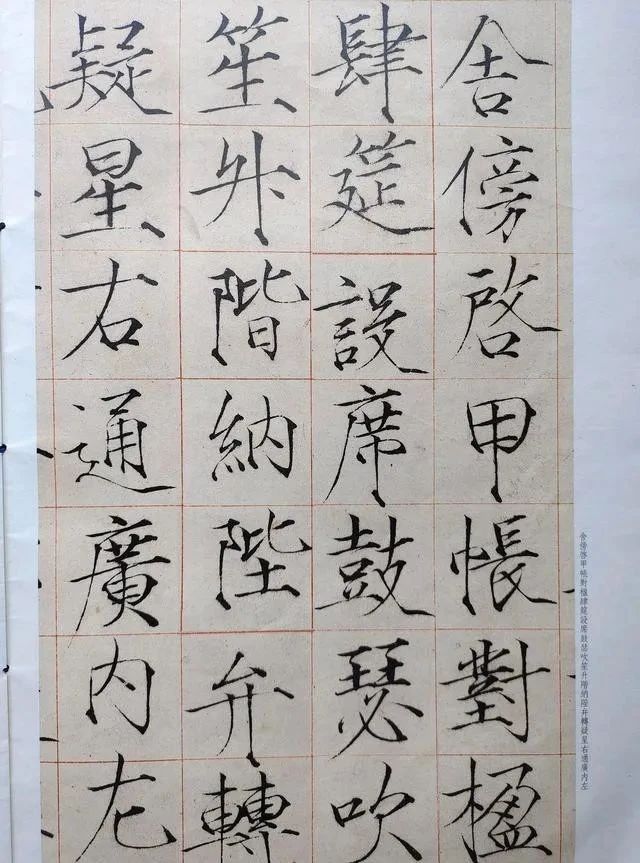 舍傍啓甲帳對楹
肆筵設席鼓瑟吹
笙升階納陛弁轉
疑星右通廣内左
舍傍啓甲帳對楹肆筵設席鼓瑟吹笙升階納陛弁轉疑星右通廣内左